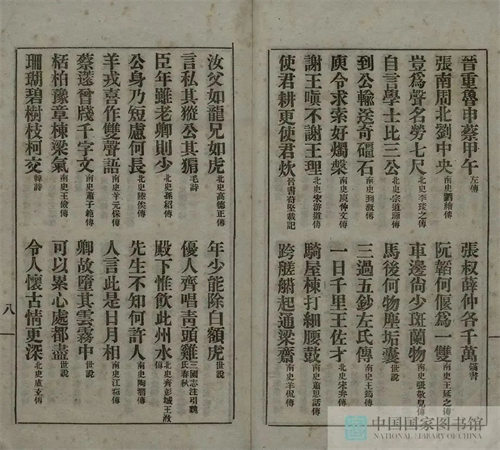 晉重魯申蔡甲午 左傳 張叔薛仲各千萬 漢書
張南周北劉中央 南史劉繪傳 阮韜何偃為一雙 南史王延之傳
豈為聲名勞七尺 北史李琰之傳 車邊尙少斑蘭物 南史張敬兒傳
自言學士比三公 北史宗道暉傳 馬後何物塵垢囊
到公輸送奇礓石 南史到溉傳 三過五鈔左氏傳 南史王筠傳
庾令求索好燭槃 南史庾仲文傳 一日千里王佐才 北史宋弁傳
謝王嗔不謝王理 北史宋游道傳 騎屋棟打細腰鼓 南史蕭思話傳
使君耕更使君炊 晉書苻堅載記 跨艖艒起通梁齋 南史羊侃傳
汝父如龍兄如虎 北史高德正傳 年少能除白額虎 世說
言私其豵公其豜 毛詩 優人齊唱青頭雞 三國志注引魏氏春秋
臣年雖老卿則少 北史孫紹傳 殿下惟飲此州水 北史齊彭城王浟傳
公身乃短慮何長 北史陸俟傳 先生不知何許人 南史陶潛傳
羊戎喜作雙聲語 南史羊元保傳 人言此是日月相 南史江祏傳
蔡薳曾牋千字文 南史蕭子範傳 卿故墮其雲霧中 世說
栝柏豫章棟梁氣 南史王儉傳 可以累心處都盡 世說
珊瑚碧樹枝柯交 韓詩 令人懷古情更深 北史盧玄傳
八
中国国家图书馆
NATIONAL LIBRARY OF CHINA